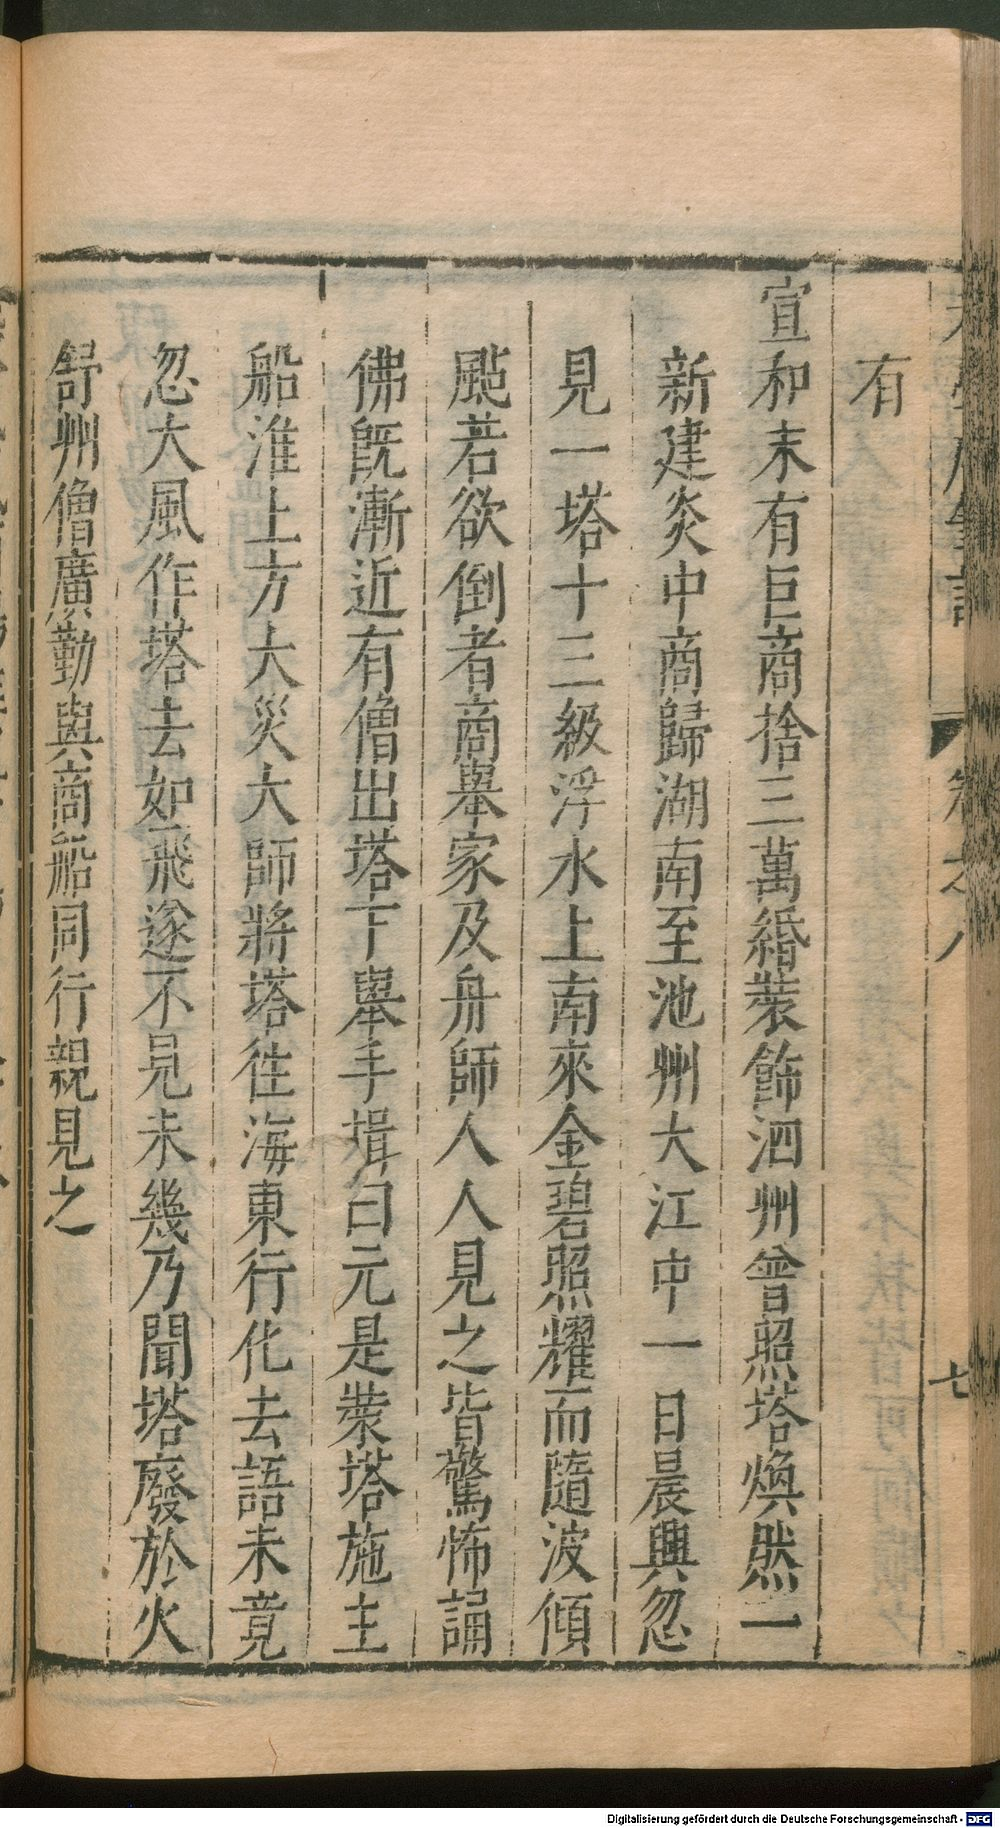 有
宣和末有巨商捨三萬緡裝飾泗州普照塔煥然一
新建炎中商歸湖南至池州大江中一日晨興忽
見一塔十三級浮水上南來金碧照耀而隨波傾
颭若欲倒者商舉家及舟師人人見之皆驚怖誦
佛旣漸近有僧出塔下舉手揖曰元是裝塔施主
船淮上方大災大師將塔徃海東行化去語未竟
忽大風作塔去如飛遂不見未幾乃聞塔廢於火
舒州僧廣勤與商船同行親見之
卷之八
七
Digitalisierung gefördert durch die Deutsche Forschungsgemeinschaft - DFG